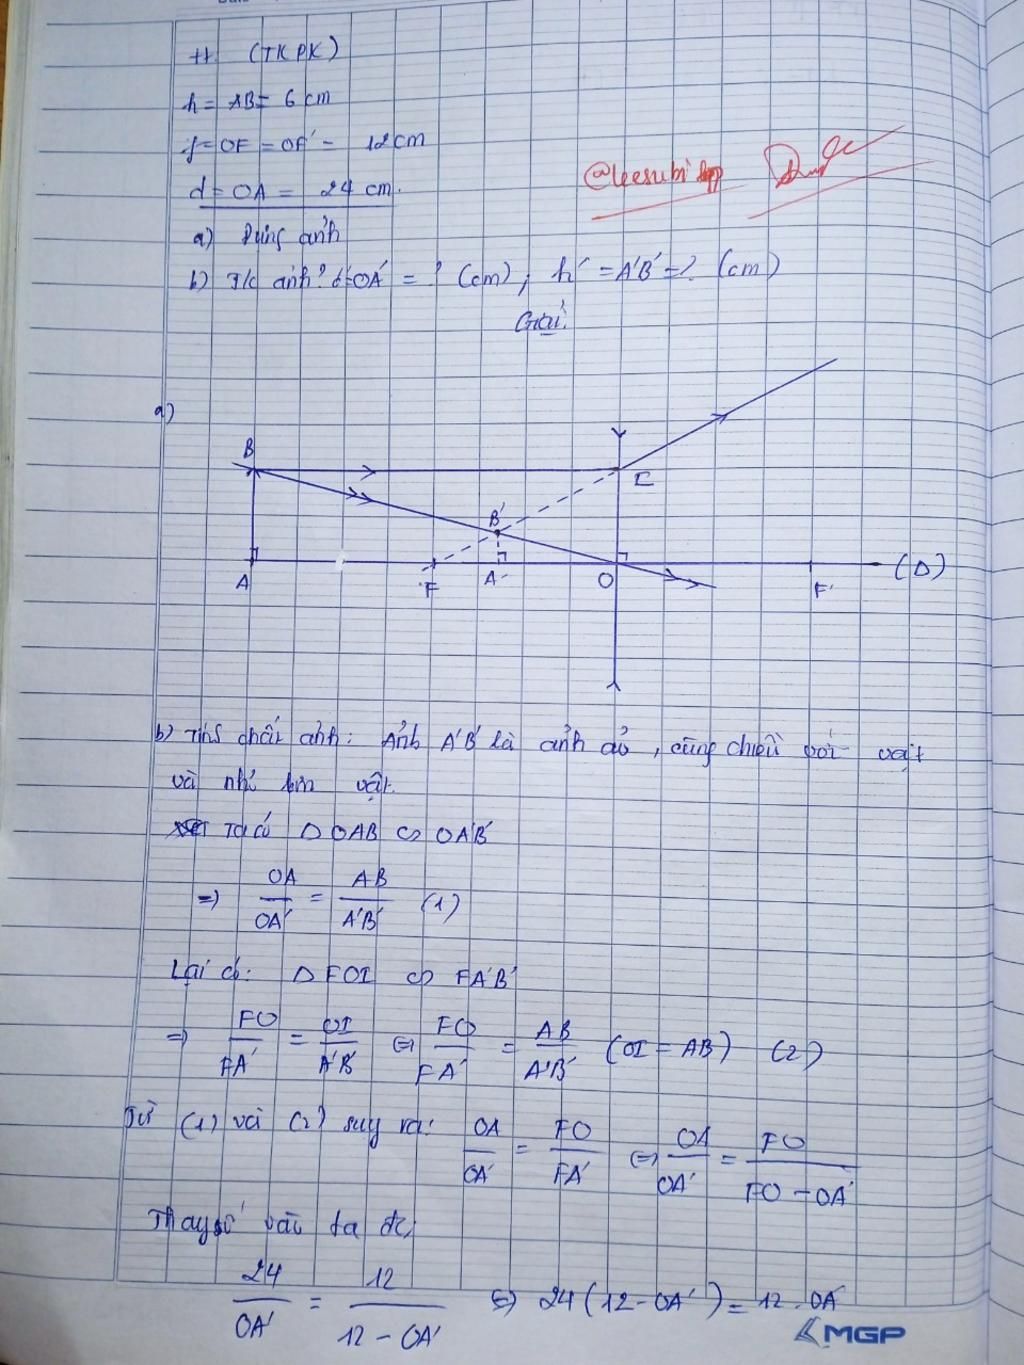 tt (TKPK)
h = AB = 6 cm
f = OF = OF' = 12 cm
d = OA = 24 cm.
@leesubi
a) Dựng ảnh
b) T/c ảnh? d'=OA' = ? (cm), h' = A'B' = ? (cm)
Giải:
a)
B
I
B'
A
F
A'
O
F'
(Δ)
b) Tính chất ảnh: Ảnh A'B' là ảnh ảo, cùng chiều với vật
và nhỏ hơn vật.
Ta có Δ OAB ∽ OA'B'
=> OA/OA' = AB/A'B' (1)
Lại có: Δ FOI ∽ FA'B'
=> FO/FA' = OI/A'B' <=> FO/FA' = AB/A'B' (OI = AB) (2)
Từ (1) và (2) suy ra: OA/OA' = FO/FA' <=> OA/OA' = FO/(FO - OA')
Thay số vào ta đc
24/OA' = 12/(12 - OA') <=> 24(12 - OA') = 12 . OA'
MGP